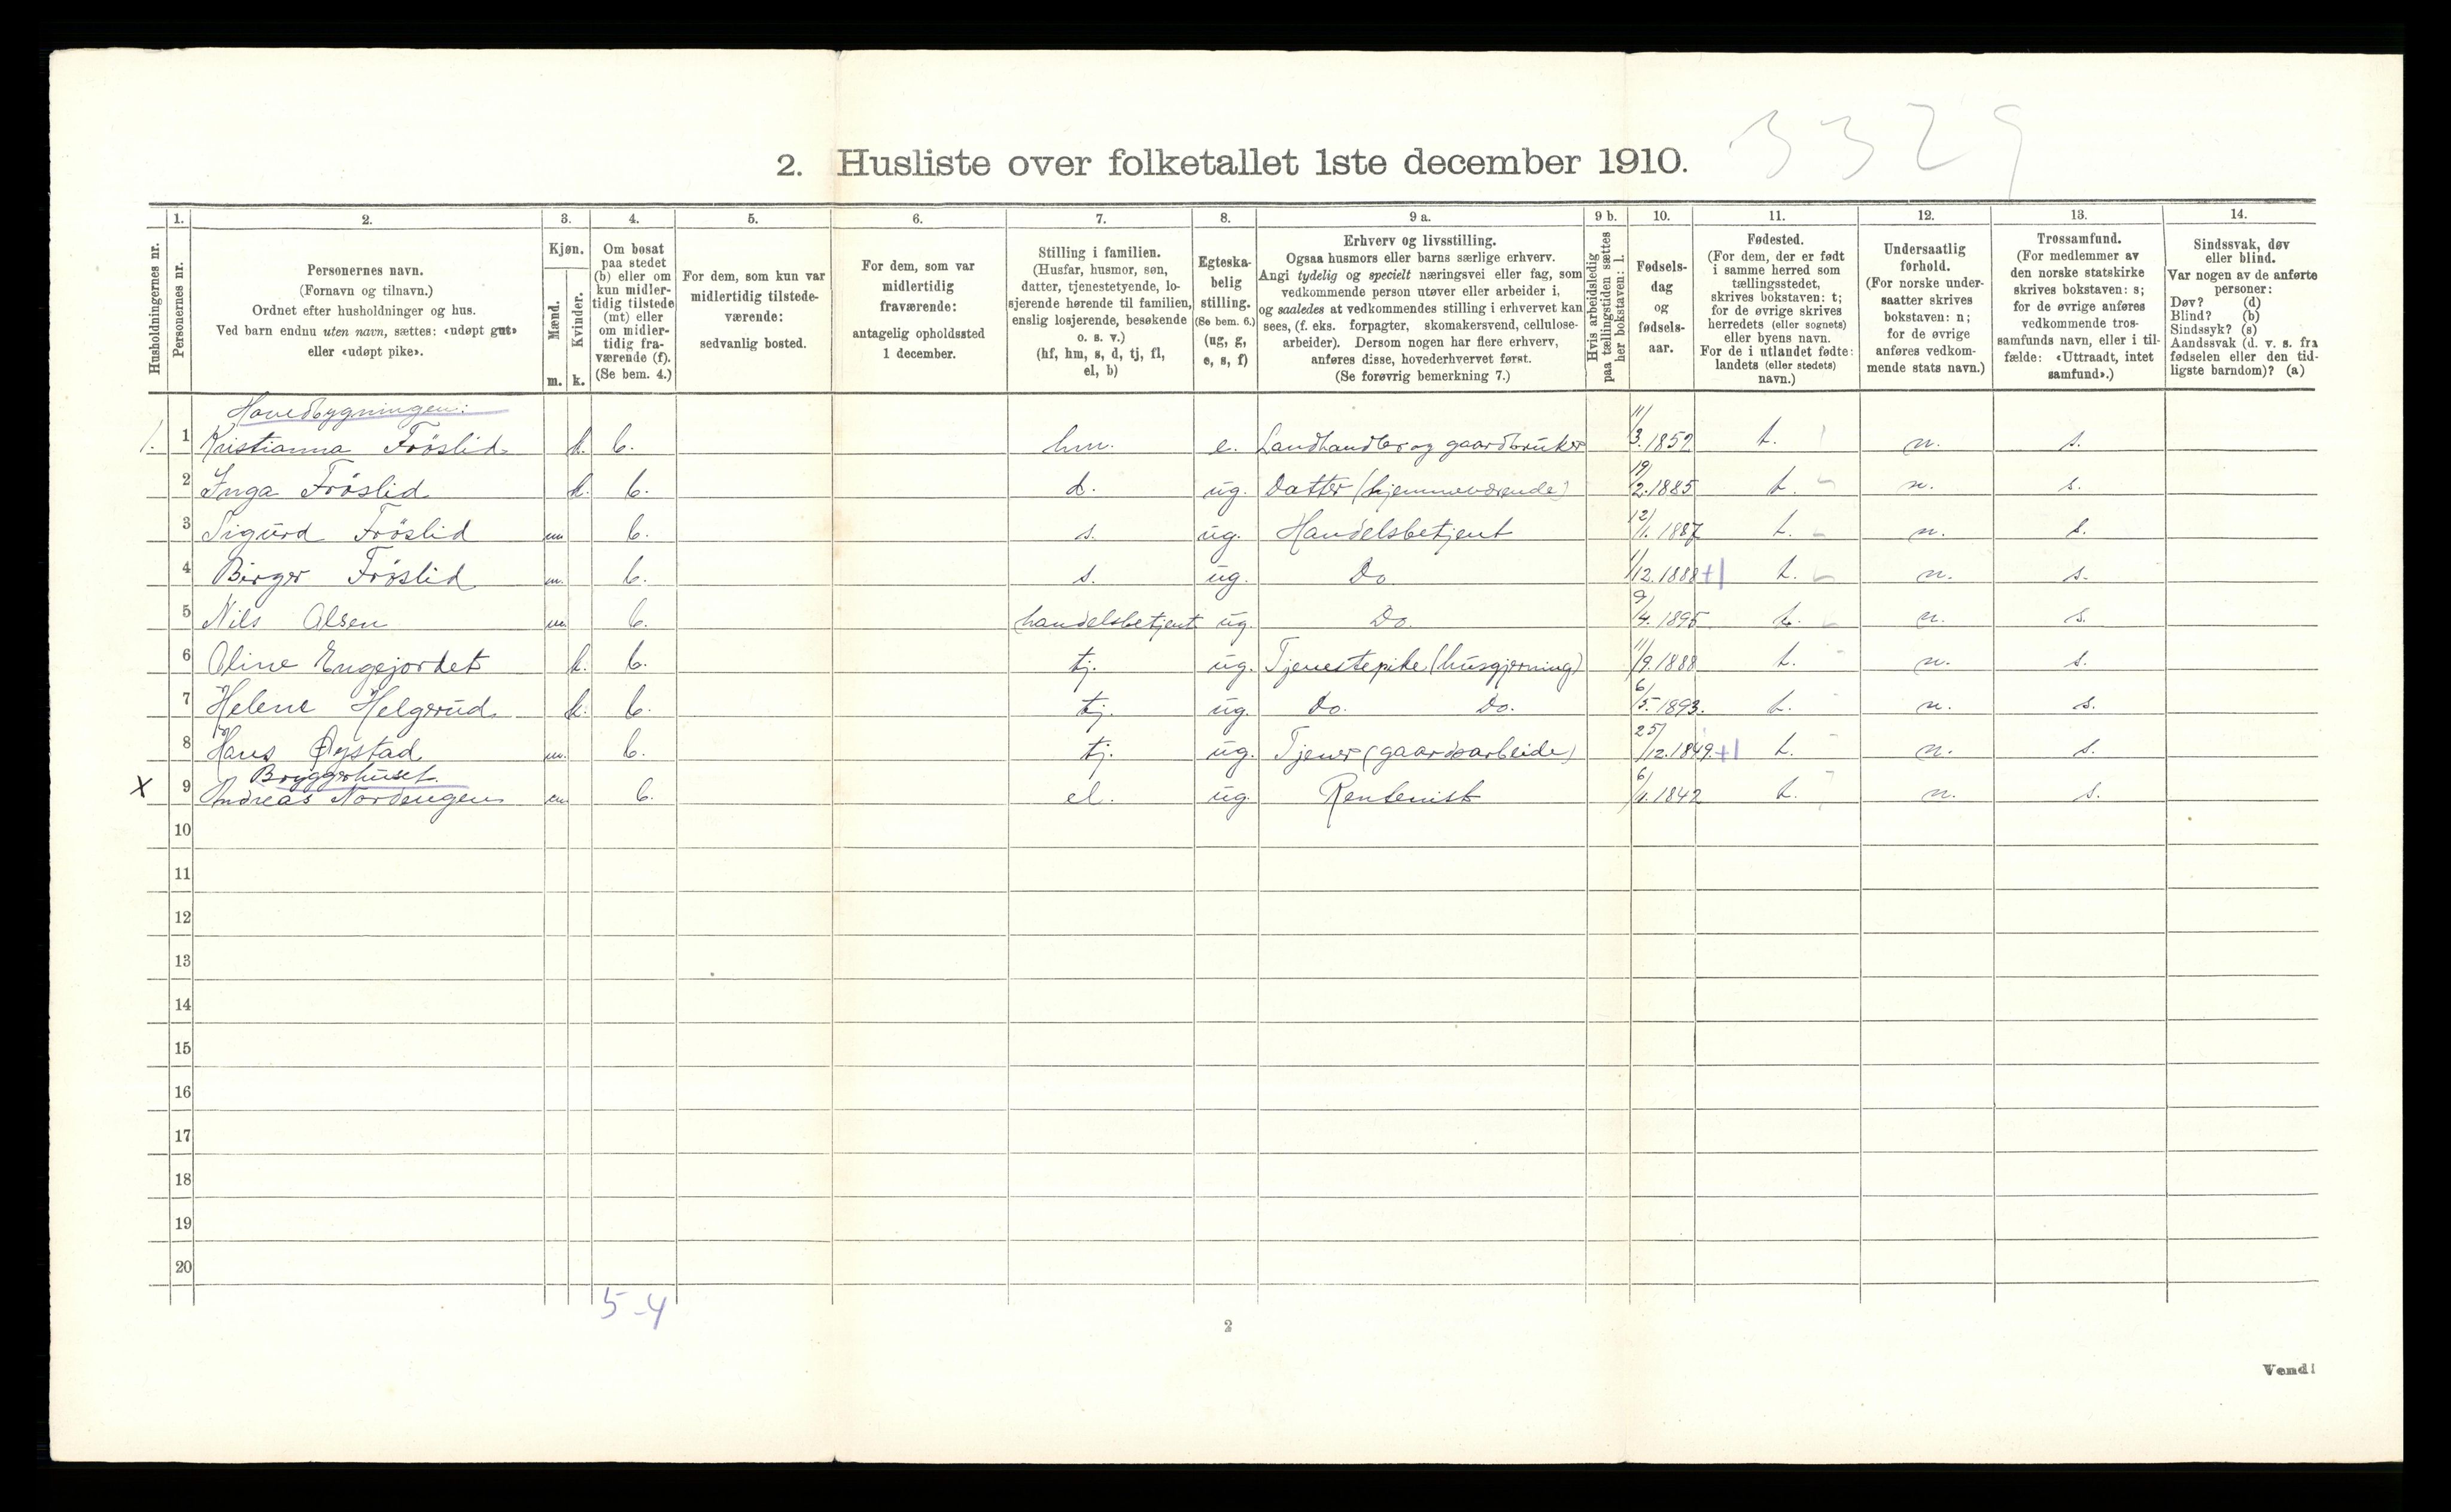 3329
2. Husliste over folketallet 1ste december 1910.
Husholdningernes nr.
1. Personernes nr.
2. Personernes navn. (Fornavn og tilnavn.) Ordnet efter husholdninger og hus. Ved barn endnu uten navn, sættes: «udøpt gut» eller «udøpt pike».
3. Kjøn. Mænd. m. Kvinder. k.
4. Om bosat paa stedet (b) eller om kun midlertidig tilstede (mt) eller om midlertidig fraværende (f). (Se bem. 4.)
5. For dem, som kun var midlertidig tilstedeværende: sedvanlig bosted.
6. For dem, som var midlertidig fraværende: antagelig opholdssted 1 december.
7. Stilling i familien. (Husfar, husmor, søn, datter, tjenestetyende, losjerende hørende til familien, enslig losjerende, besøkende o. s. v.) (hf, hm, s, d, tj, fl, el, b)
8. Egteskabelig stilling. (Se bem. 6.) (ug, g, e, s, f)
9 a. Erhverv og livsstilling. Ogsaa husmors eller barns særlige erhverv. Angi tydelig og specielt næringsvei eller fag, som vedkommende person utøver eller arbeider i, og saaledes at vedkommendes stilling i erhvervet kan sees, (f. eks. forpagter, skomakersvend, cellulosearbeider). Dersom nogen har flere erhverv, anføres disse, hovederhvervet først. (Se forøvrig bemerkning 7.)
9 b. Hvis arbeidsledig paa tællingstiden sættes her bokstaven: l.
10. Fødselsdag og fødselsaar.
11. Fødested. (For dem, der er født i samme herred som tællingsstedet, skrives bokstaven: t; for de øvrige skrives herredets (eller sognets) eller byens navn. For de i utlandet fødte: landets (eller stedets) navn.)
12. Undersaatlig forhold. (For norske undersaatter skrives bokstaven: n; for de øvrige anføres vedkommende stats navn.)
13. Trossamfund. (For medlemmer av den norske statskirke skrives bokstaven: s; for de øvrige anføres vedkommende trossamfunds navn, eller i tilfælde: «Uttraadt, intet samfund».)
14. Sindssvak, døv eller blind. Var nogen av de anførte personer: Døv? (d) Blind? (b) Sindssyk? (s) Aandssvak (d. v. s. fra fødselen eller den tidligste barndom)? (a)
Hovedbygningen:
1. 1 Kristianna Fröslid k. b. hm. e. Landhandler og gaardbruker 11/3.1852 t. n. s.
2 Inga Fröslid k. b. d. ug. Datter (hjemmeværende) 19/2.1885 t. n. s.
3 Sigurd Fröslid m b. s. ug. Handelsbetjent 12/1.1887 t. n. s.
4 Birger Fröslid m. b. s. ug. Do 1/12.1888 +1 t. n. s.
5 Nils Olsen m b. handelsbetjent ug. Do. 9/4.1895 t. n. s.
6 Oline Engejordet k. b. tj. ug. Tjenestepike (husgjerning) 11/9.1888 t. n. s.
7 Helene Helgerud k. b. tj. ug. Do. Do. 6/5.1893. t. n. s.
8 Hans Øystad m. b. tj. ug. Tjener (gaardsarbeide) 25/12.1849. +1 t. n. s.
Bryggerhuset.
X 9 Andreas Nordengen m b. el. ug. Rentenist 6/1.1842 t. n. s.
10
11
12
13
14
15
16
17
18
19
20
5-4
2
Vend!